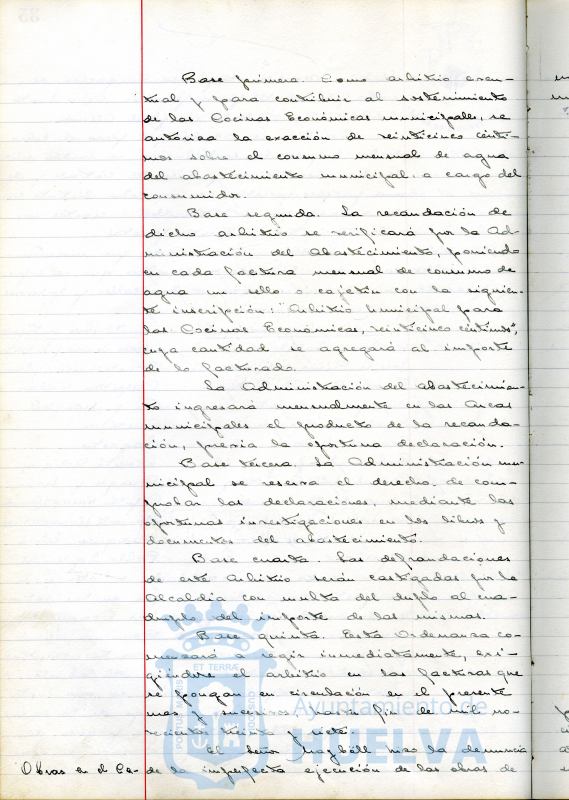 Base primera. Como arbitrio even-
tual y para contribuir al sostenimiento
de las Cocinas Económicas municipales, se
autoriza la exacción de veinticinco cénti-
mos sobre el consumo mensual de agua
del abastecimiento municipal a cargo del
consumidor.
Base segunda. La recaudación de
dicho arbitrio se verificará por la Ad-
ministración del Abastecimiento, poniendo
en cada factura mensual de consumo de
agua un sello o cajetín con la siguien-
te inscripción: "Arbitrio Municipal para
las Cocinas Económicas, veinticinco céntimos",
cuya cantidad se agregará al importe
de lo facturado.
La Administración del abastecimien-
to ingresará mensualmente en las Arcas
municipales el producto de la recauda-
ción, previa la oportuna declaración.
Base tercera. La Administración mu-
nicipal se reserva el derecho de com-
probar las declaraciones, mediante las
oportunas investigaciones en los libros y
documentos del abastecimiento.
Base cuarta. Las defraudaciones
de este Arbitrio serán castigadas por la
Alcaldía con multa del duplo al cua-
druplo del importe de las mismas.
Base quinta. Esta Ordenanza co-
menzará a regir inmediatamente, exi-
giéndose el arbitrio en las facturas que
se pongan en circulación en el presente
mes y sucesivos, hasta fin de mil no-
vecientos treinta y siete.
El Señor hizo la denuncia
Obras en el Ca- de la imperfecta ejecución de las obras de
Ayuntamiento de
HUELVA